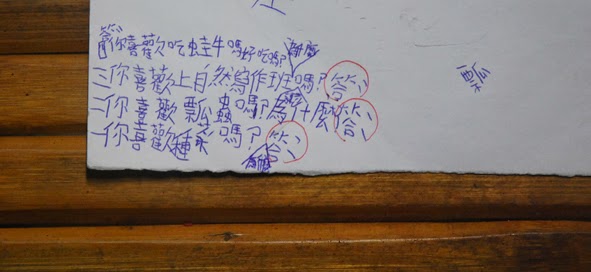 你喜歡吃蛙牛嗎好吃嗎?
三你喜歡上自然寫作班嗎?答:
二你喜歡瓢蟲嗎?為什麼答:
一你喜歡種嗎?答:
瓢